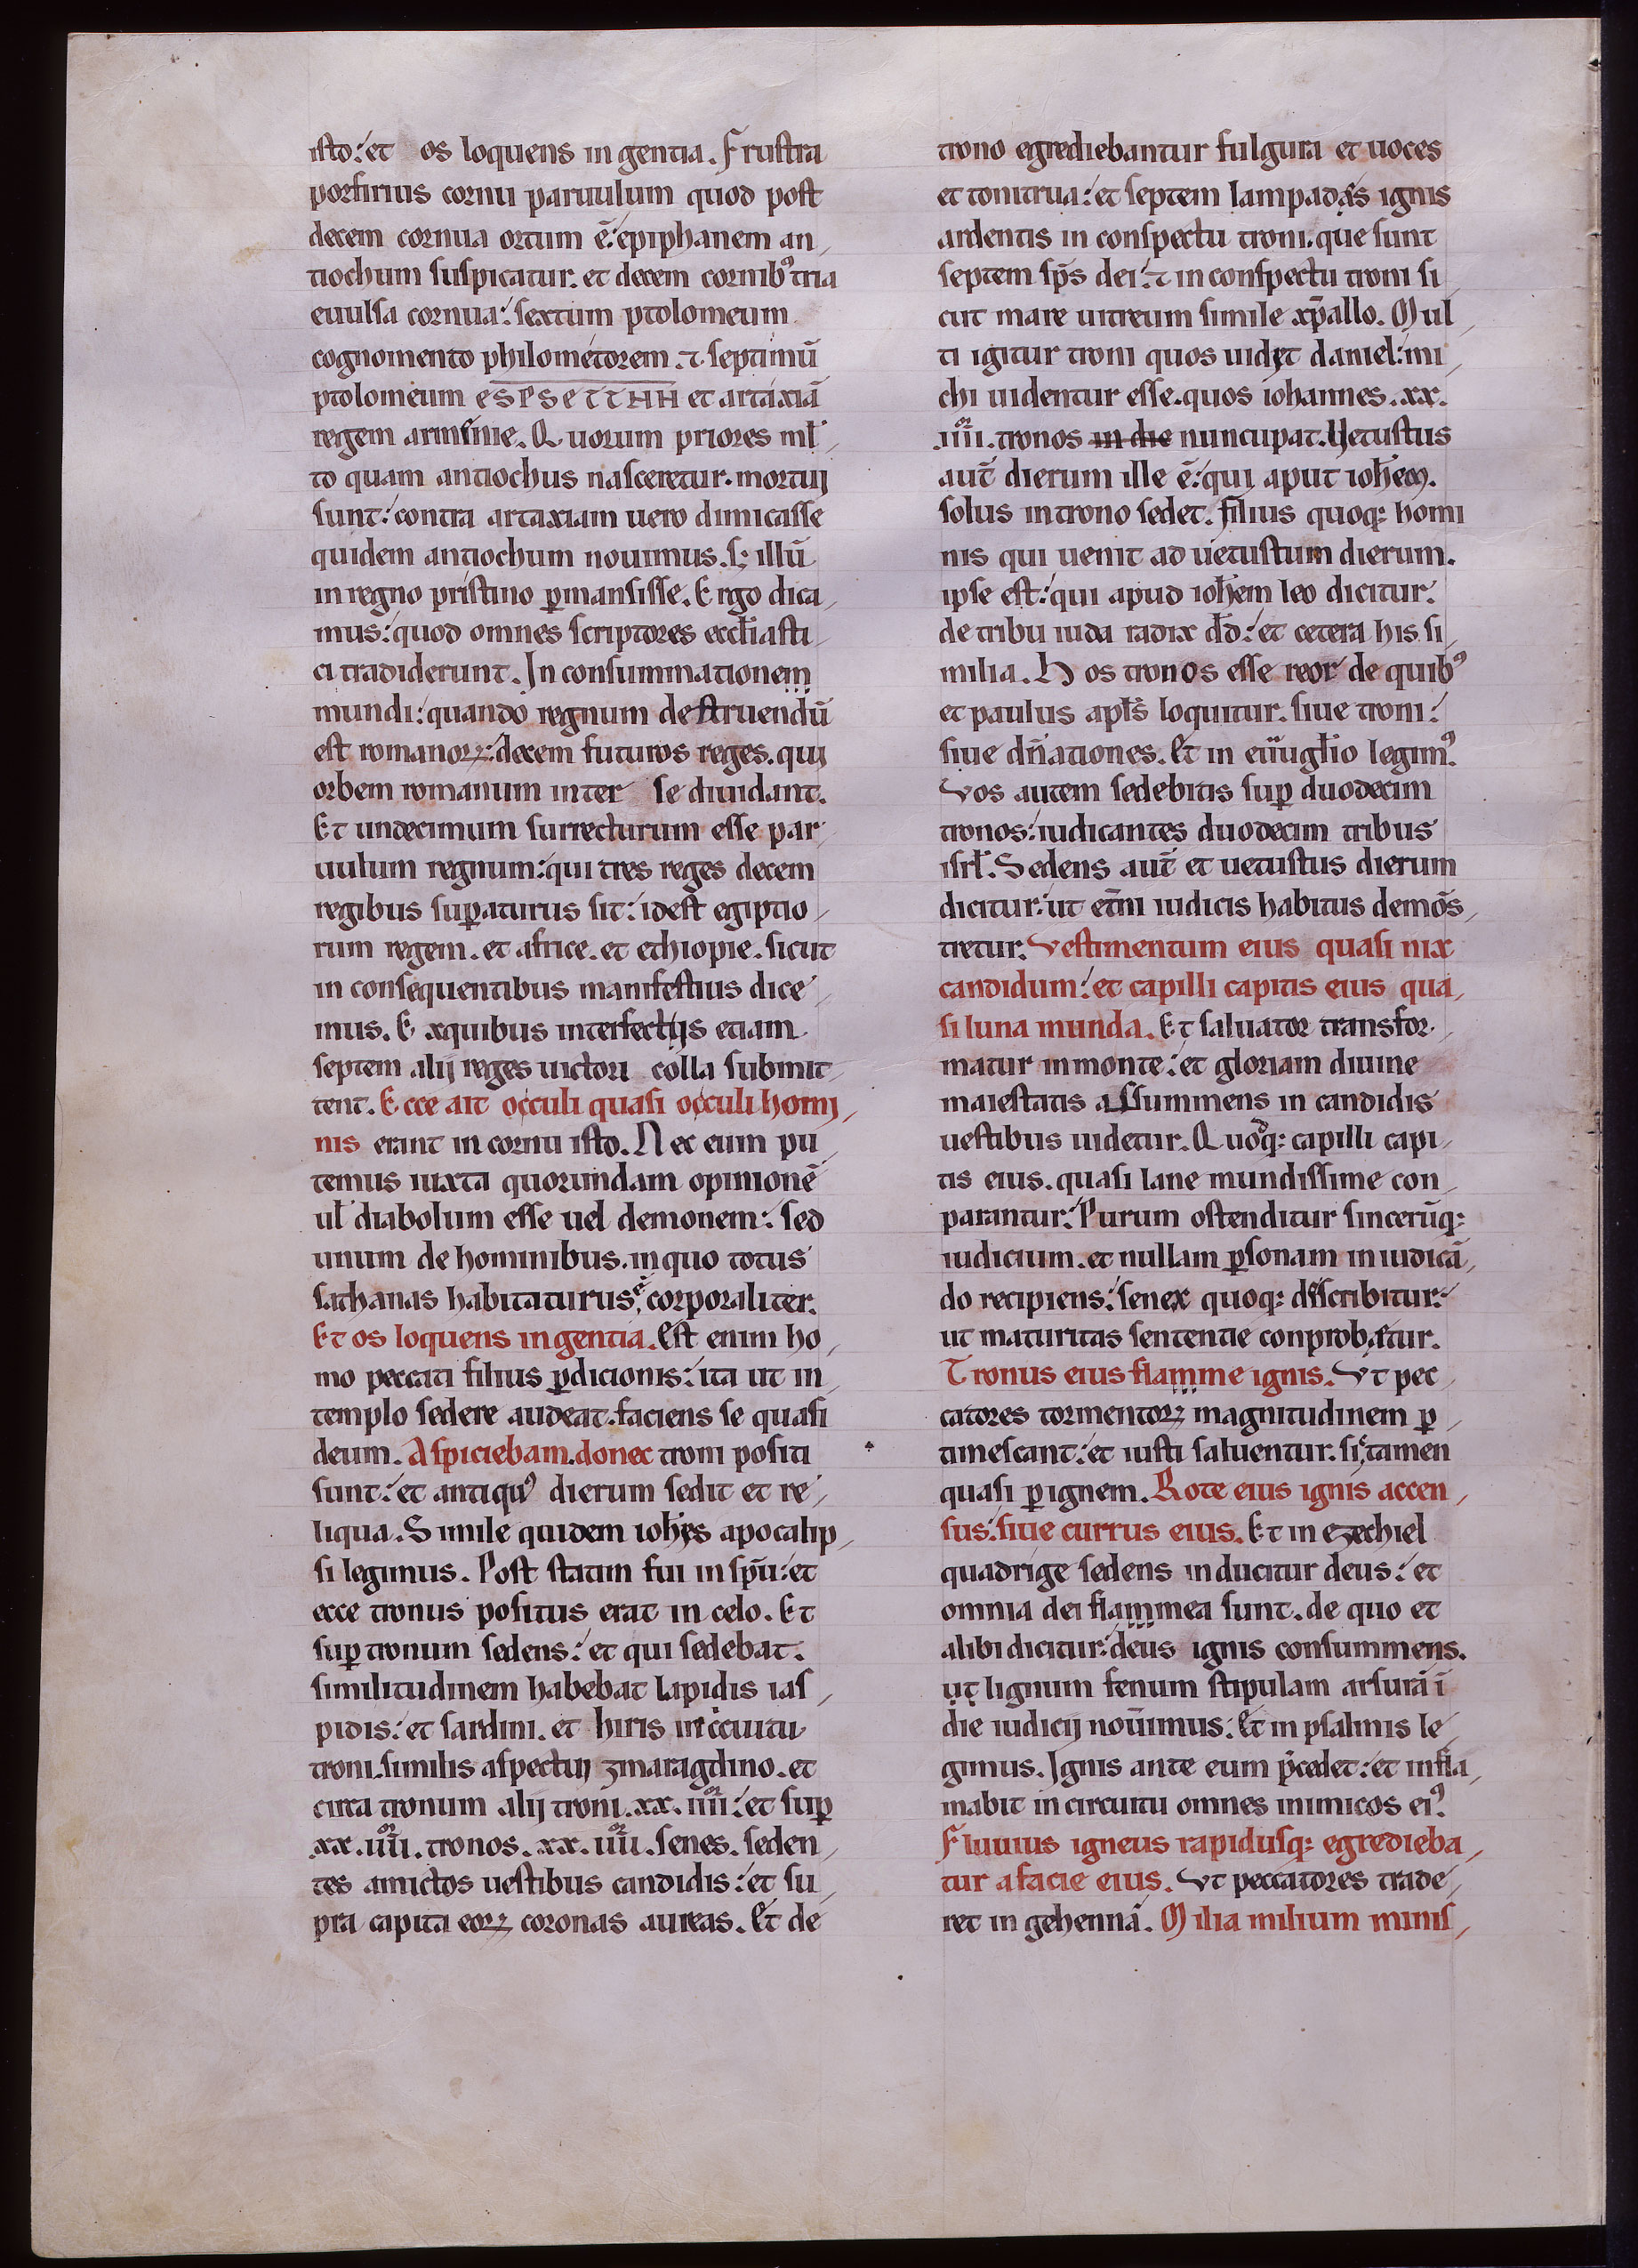 isto: et os loquens ingentia. Frustra
porfirius cornu paruulum quod post
decem cornua ortum ē: epiphanem an
tiochum suspicatur. et decem cornibꝰ tria
euulsa cornua: sextum ptolomeum
cognomento philometorem. ⁊ septimū
ptolomeum et artaxiā
regem armenie. Quorum priores ml̄
to quam antiochus nasceretur. mortui
sunt: contra artaxiam uero dimicasse
quidem antiochum nouimus. sꝫ illū
in regno pristino ꝑmansisse. Ergo dica
mus: quod omnes scriptores eccl̄iasti
ci tradiderunt. In consummationem
mundi: quando regnum destruendū
est romanoꝝ: decem futuros reges. qui
orbem romanum inter se diuidant.
Et undecimum surrecturum esse par
uulum regnum: qui tres reges decem
regibus suꝑaturus sit: idest egiptio
rum regem. et africe. et ethiopie. sicut
in consequentibus manifestius dice
mus. Exquibus interfectijs etiam
septem alij reges uictori colla submit
tent. Ecce ait occuli quasi occuli homi
nis erant in cornu isto. Nec eum pu
temus iuxta quorundam opinionē
ul̄ diabolum esse uel demonem: sed
unum de hominibus. inquo totus
sathanas habitaturus ē corporaliter.
Et os loquens ingentia. Est enim ho
mo peccati filius ꝑdicionis: ita ut in
templo sedere audeat. faciens se quasi
deum. Aspiciebam. donec troni positi
sunt: et antiquꝰ dierum sedit et re
liqua. Simile quidem ioh̄is apocalip
si legimus. Post statim fui in sp̄u: et
ecce tronus positus erat in celo. Et
suꝑ tronum sedens: et qui sedebat.
similitudinem habebat lapidis ias
pidis: et sardini. et hiris in ccuitu
troni. similis aspectui zmaragdino. et
circa tronum alij troni. xx. iiii: et suꝑ
xx. iiii. tronos. xx. iiii. senes. seden
tes amictos uestibus candidis: et su
pra capita eoꝝ coronas aureas. Et de
trono egrediebantur fulgura et uoces
et tonitrua: et septem lampadas ignis
ardentis in conspectu troni. que sunt
septem sp̄s dei: ⁊ in conspectu troni si
cut mare uitreum simile xp̄allo. Mul
ti igitur troni quos uidet daniel: mi
chi uidentur esse. quos iohannes. xx.
iiii. tronos in die nuncupat. Uetustus
aut̄ dierum ille ē: qui aput ioh̄em.
solus introno sedet. filius quoqꝫ homi
nis qui uenit ad uetustum dierum.
ipse est: qui apud ioh̄em leo dicitur.
de tribu iuda radix d̄d: et cetera his si
milia. Hos tronos esse reor de quibꝰ
et paulus apl̄s loquitur. siue troni:
siue dn̄ationes. Et in euugl̄io legimꝰ.
Vos autem sedebitis suꝑ duodecim
tronos: iudicantes duodecim tribus
isrl̄. Sedens aut̄ et uetustus dierum
dicitur. ut et̄ni iudicis habitus demōs
tretur. Vestimentum eius quasi nix
candidum: et capilli capitis eius qua
si luna munda. Et saluator transfor
matur inmonte: et gloriam diuine
maiestatis assummens in candidis
uestibus uidetur. Quodqꝫ capilli capi
tis eius. quasi lane mundissime con
parantur. Purum ostenditur sincerūqꝫ
iudicium. et nullam ꝑsonam in iudicā
do recipiens: senex quoqꝫ describitur:
ut maturitas sententie conprobetur.
Tronus eius flamme ignis. Vt pec
catores tormentoꝝ magnitudinem ꝑ
timescant: et iusti saluentur. sic tamen
quasi ꝑ ignem. Rote eius ignis accen
sus: siue currus eius. Et in ezechiel
quadrige sedens inducitur deus: et
omnia dei flammea sunt. de quo et
alibi dicitur: deus ignis consummens.
ut lignum fenum stipulam arsurā ī
die iudicij nouimus. Et in psalmis le
gimus. Ignis ante eum p̄cedet: et infla
mabit in circuitu omnes inimicos eiꝰ.
Fluuius igneus rapidusqꝫ egredieba
tur a facie eius. Vt peccatores trade
ret in gehennā. Milia milium minis